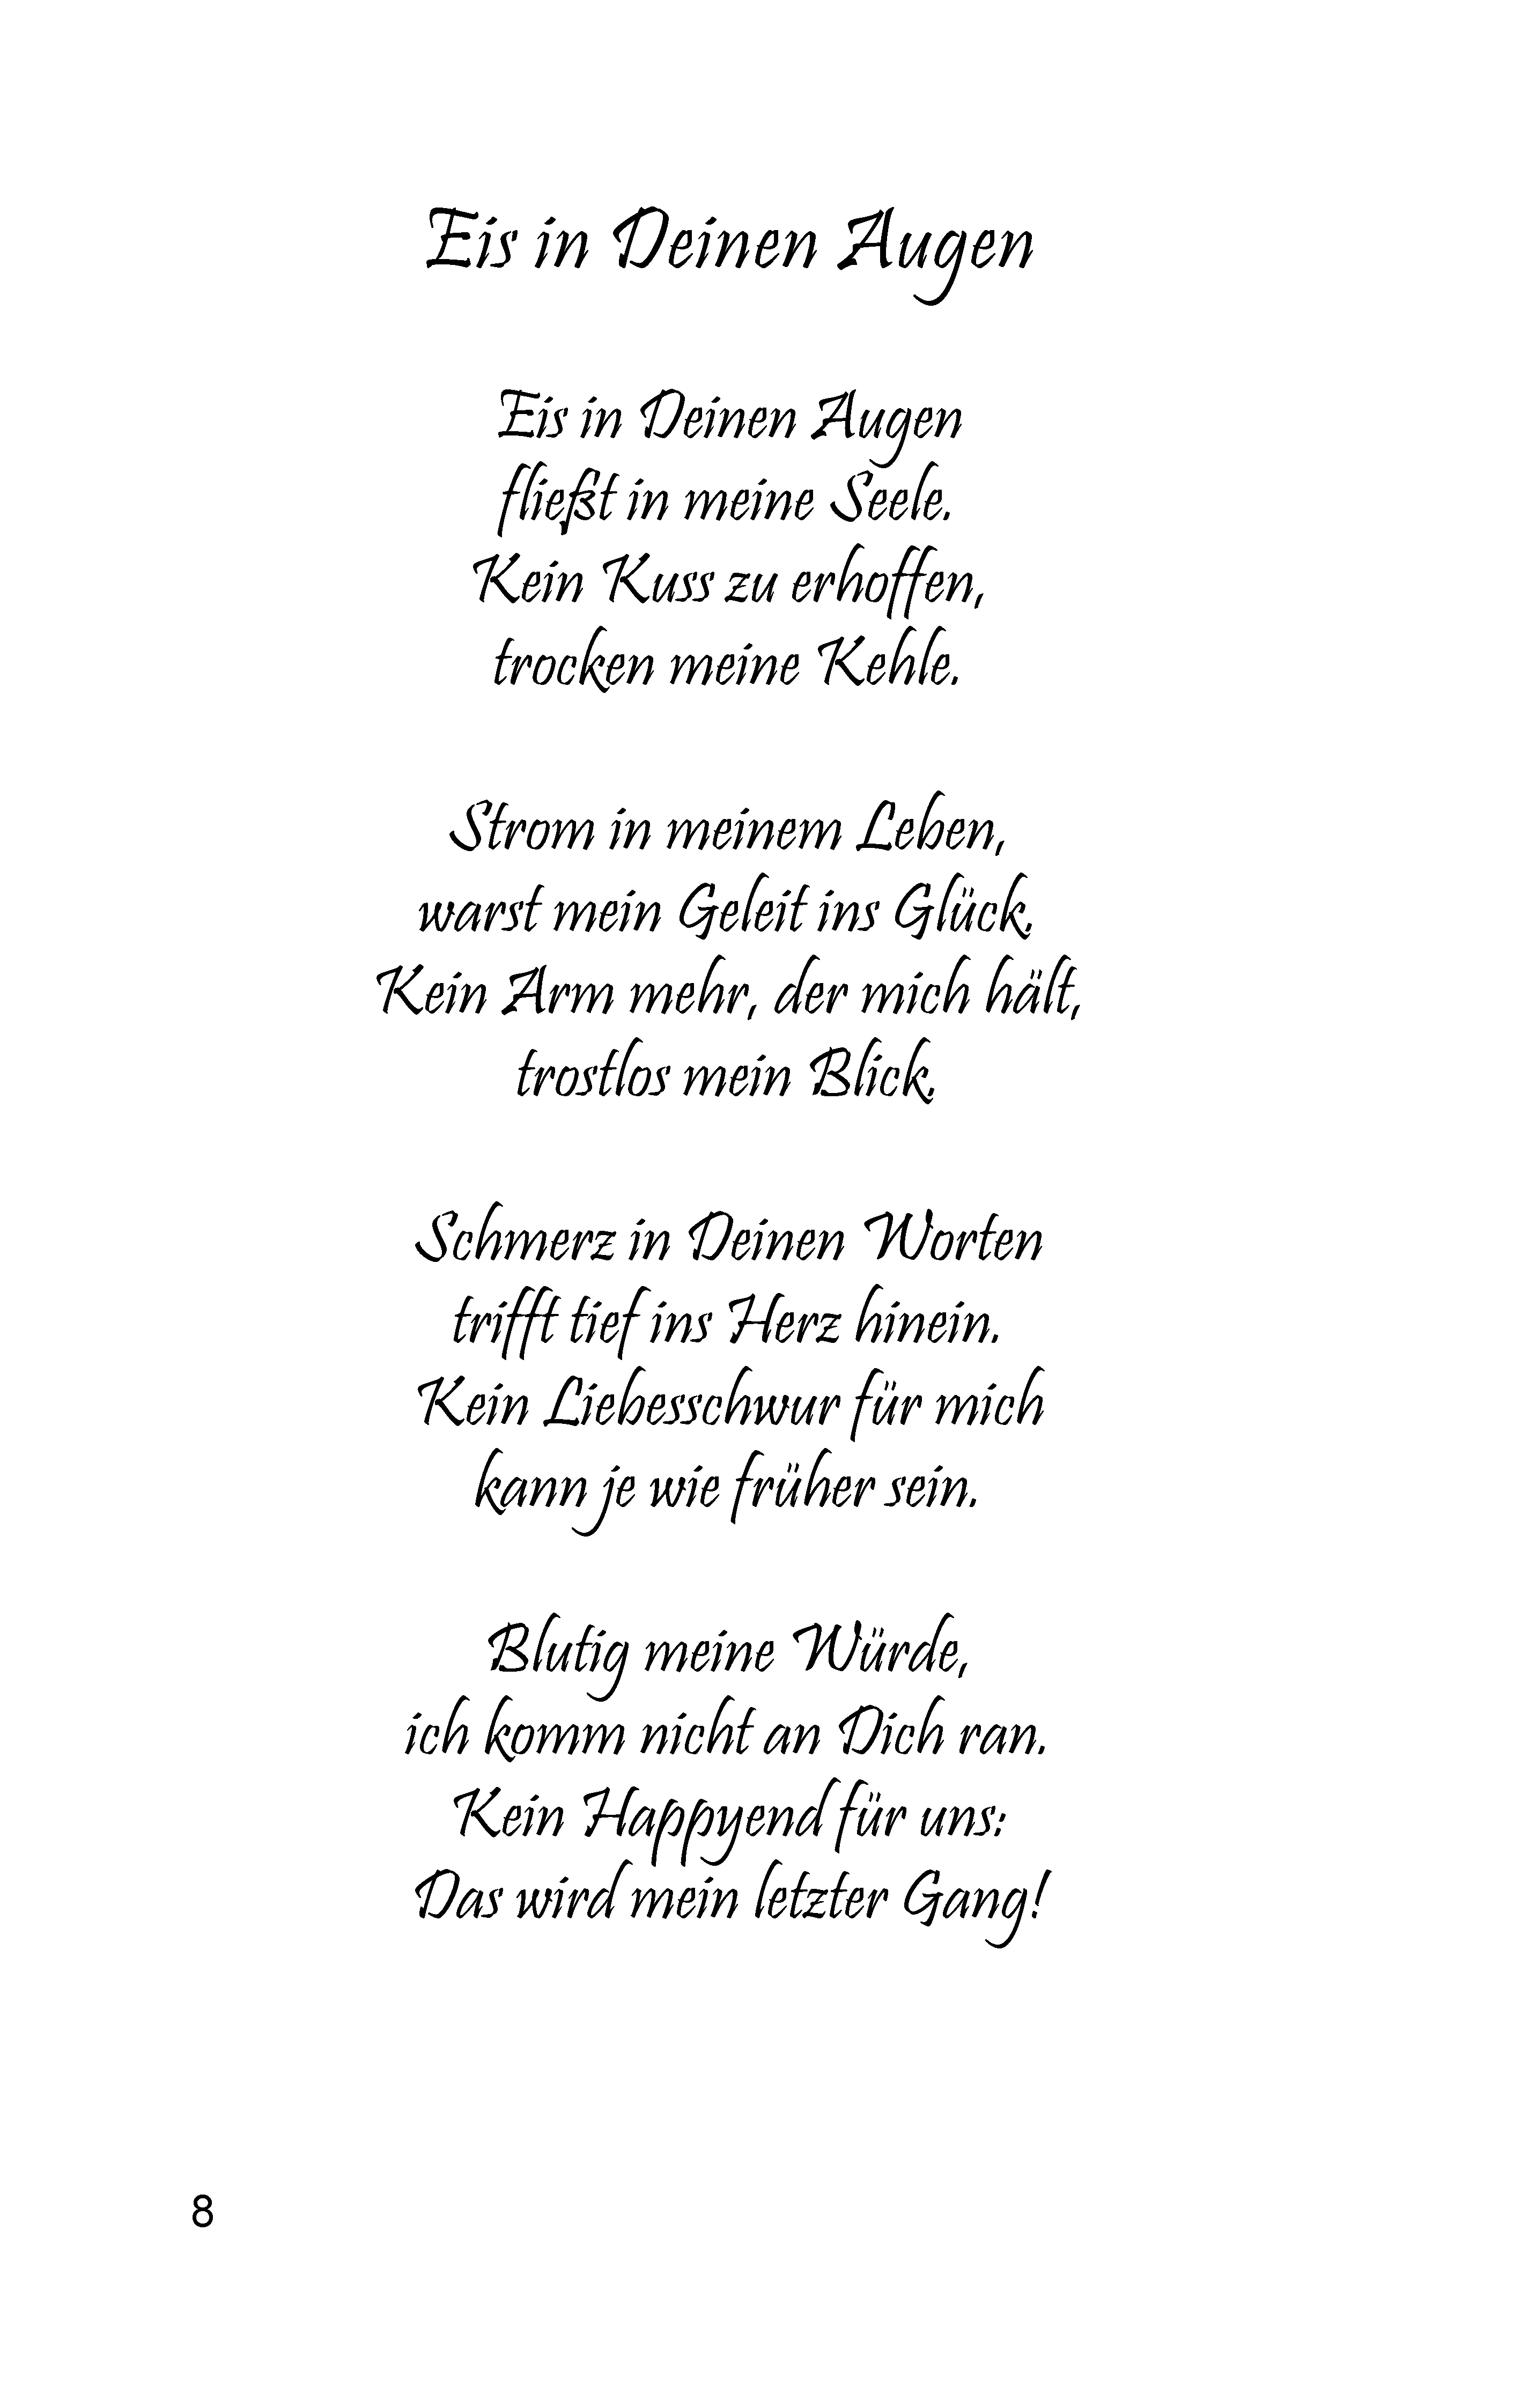 Eis in Deinen Augen
Eis in Deinen Augen
fließt in meine Seele.
Kein Kuss zu erhoffen,
trocken meine Kehle.
Strom in meinem Leben,
warst mein Geleit ins Glück.
Kein Arm mehr, der mich hält,
trostlos mein Blick.
Schmerz in Deinen Worten
trifft tief ins Herz hinein.
Kein Liebesschwur für mich
kann je wie früher sein.
Blutig meine Würde,
ich komm nicht an Dich ran.
Kein Happyend für uns:
Das wird mein letzter Gang!
8